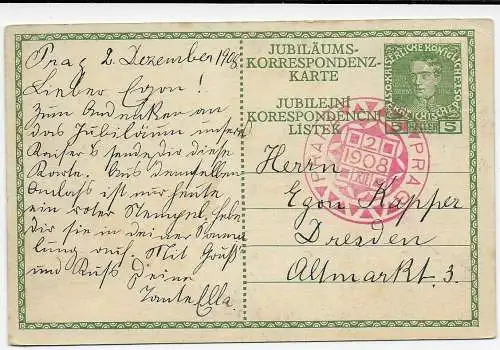 Prag 2. Dezember 1908
Lieber Egon!
Zum Andenken an
das Jubiläum unseres
Kaiser's sende dir diese
Karte. Aus demselben
Anlass ist nur heute
ein roter Stempel. Hebe
dir sie in deiner Samm-
lung auf. Mit Gruß
und Kuss Deine
Tante Ella.
JUBILÄUMS-
KORRESPONDENZ-
KARTE
JUBILEJNÍ
KORESPONDENČNÍ
LÍSTEK
5 HELLER 5
PRAG PRAHA
2
1908
XII
Herrn
Egon Kapper
Dresden
Altmarkt 3.